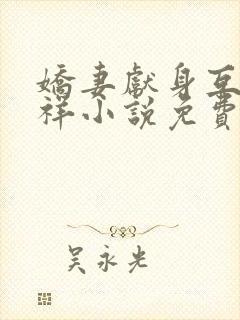 嬌妻獻身互
祥小說免費
吴永光